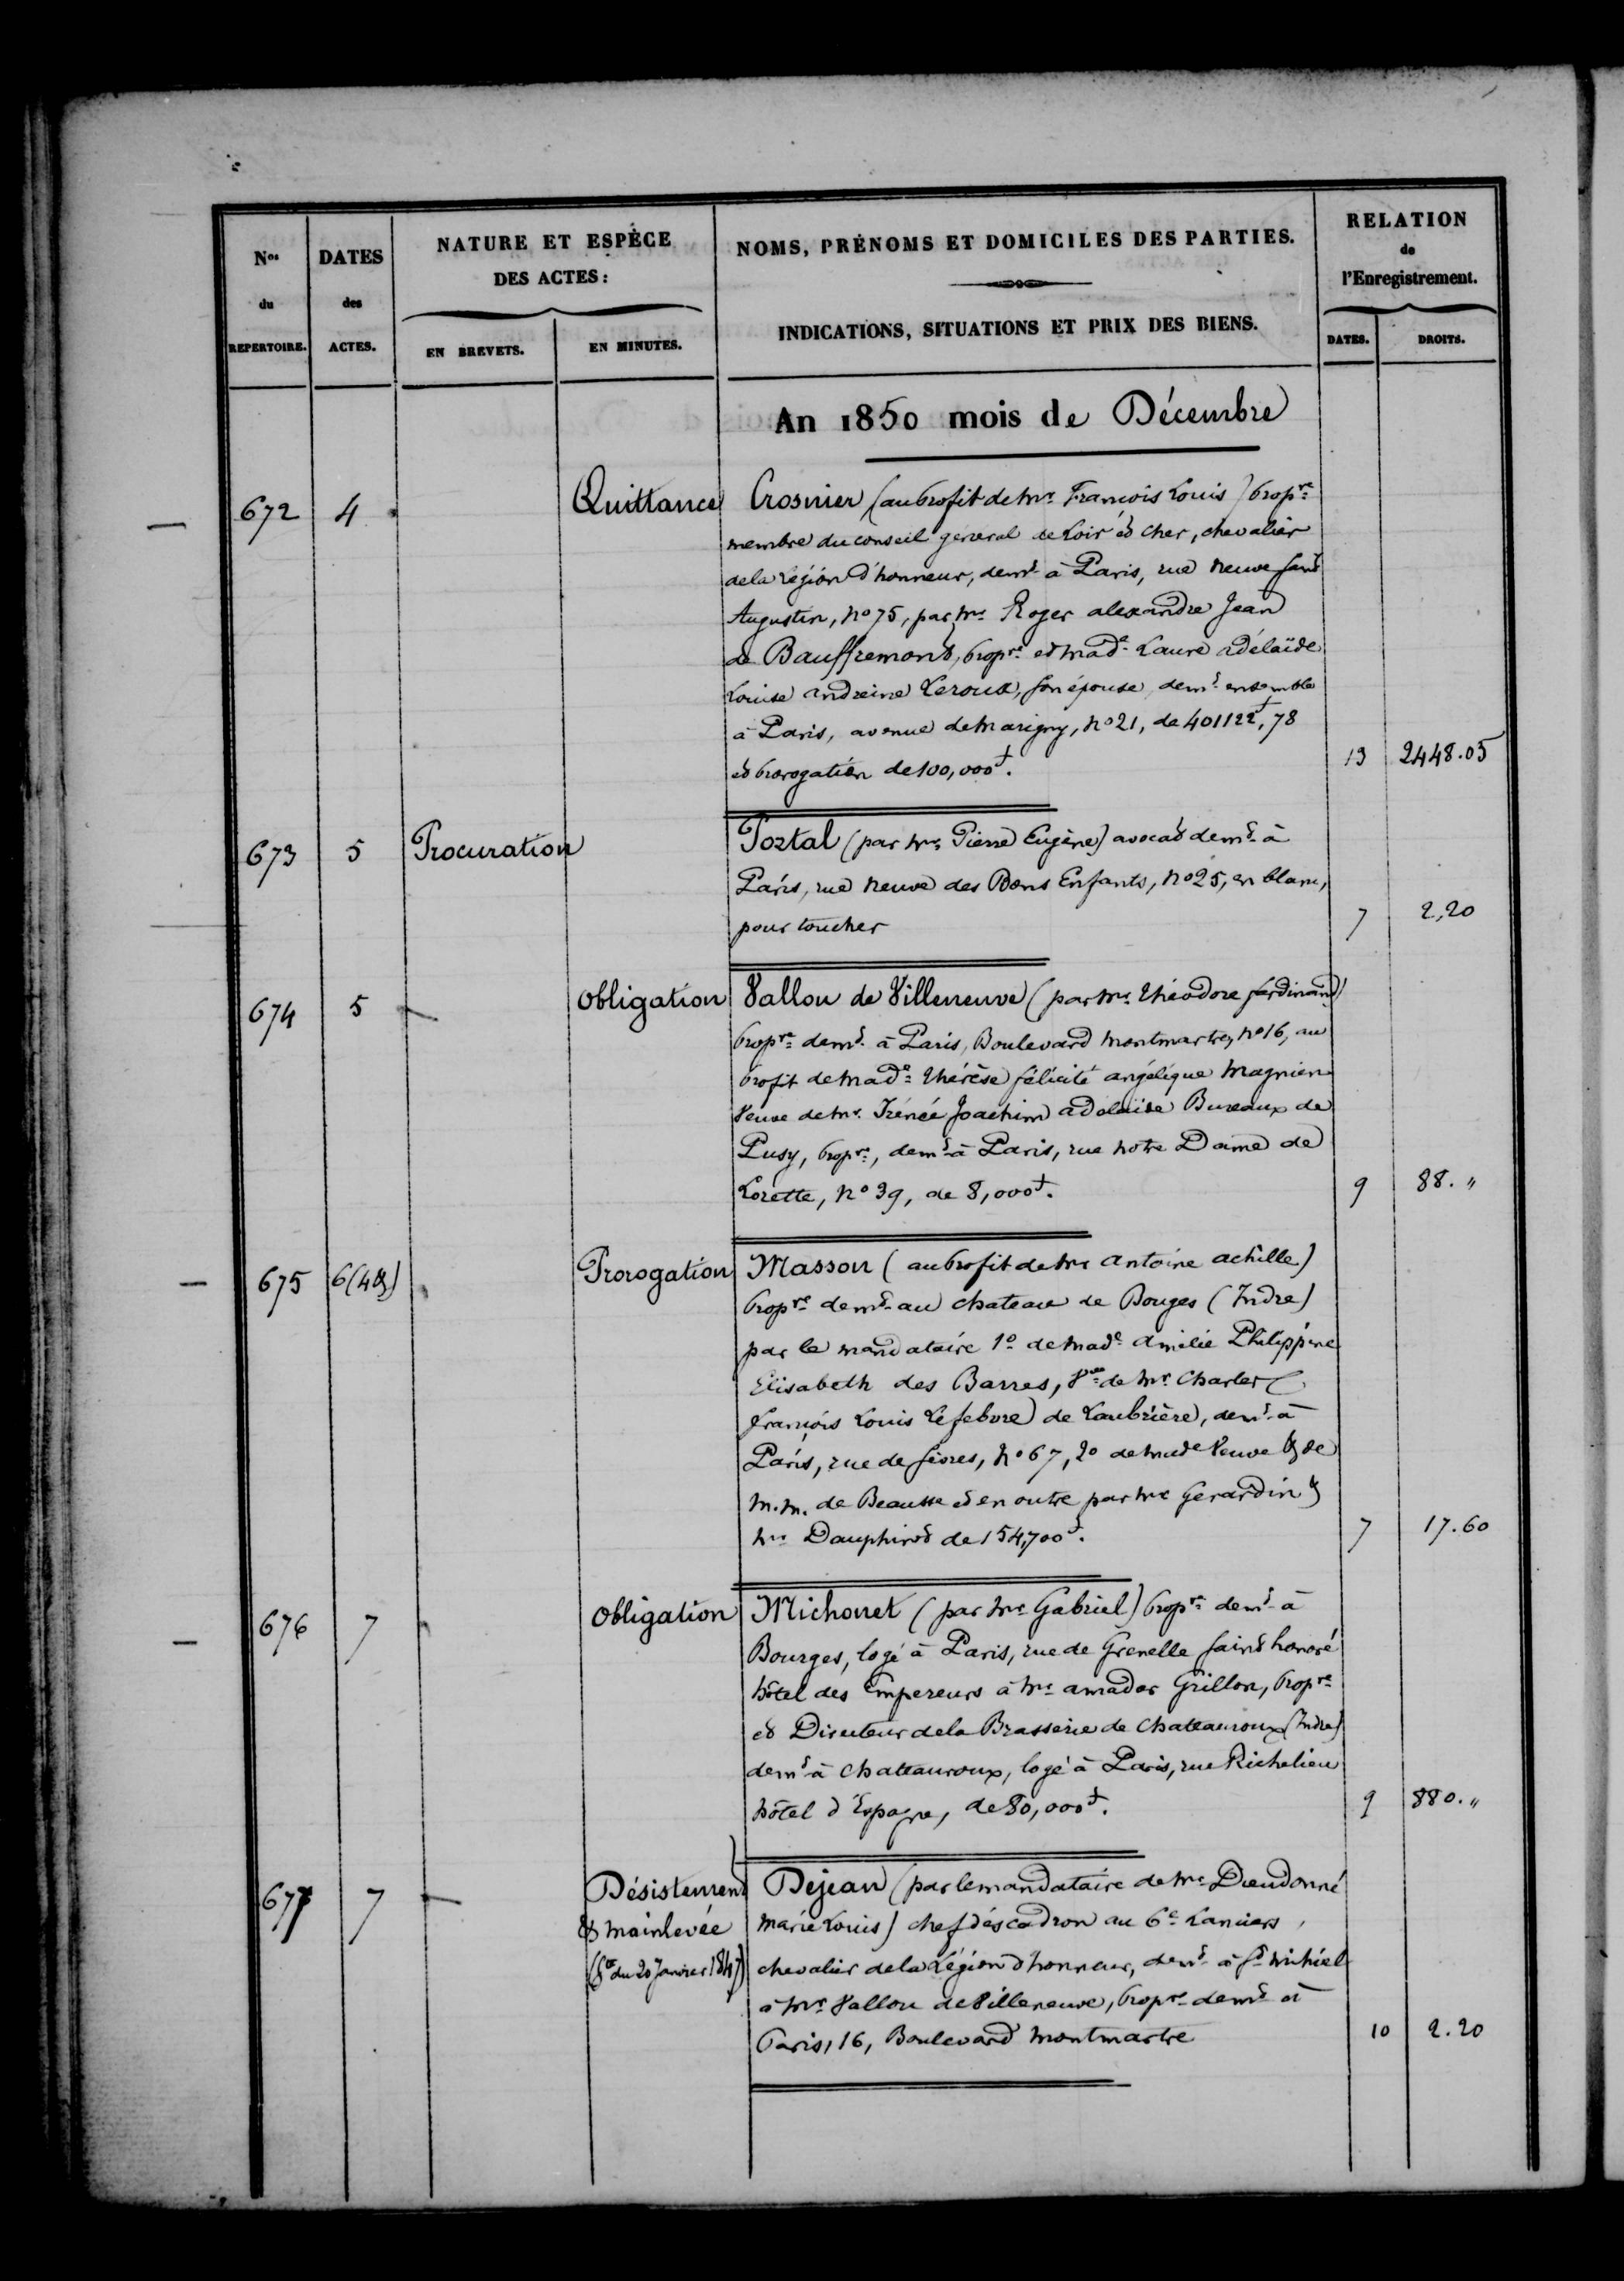 Nos du REPERTOIRE.
DATES des ACTES.
NATURE ET ESPÈCE DES ACTES:
EN BREVETS.
EN MINUTES.
NOMS, PRÉNOMS ET DOMICILES DES PARTIES.
INDICATIONS, SITUATIONS ET PRIX DES BIENS.
RELATION de l'Enregistrement.
DATES.
DROITS.
An 1850 mois de Décembre
672 4 Quittance Crosnier (au profit de Mr. François Louis) propre.
membre du conseil général de Loir et Cher, chevalier
de la légion d'honneur, demt. à Paris, rue neuve saint
Augustin, no 75, par Mr. Roger alexandre Jean
de Bauffremont, propre. et Made. Laure adélaïde
Louise andreine Leroux, son épouse, demt. ensemble
à Paris, avenue de Marigny, no 21, de 401122f,78
et prorogation de 100,000f. 13 2448.05
673 5 Procuration Portal (par Mr. Pierre Eugène) avocat demt. à
Paris, rue neuve des Bons Enfants, no 25, en blanc,
pour toucher 7 2,20
674 5 Obligation Vallou de Villeneuve (par Mr. Théodore ferdinand)
propre. demt. à Paris, Boulevard Montmartre, no 16, au
profit de Made. Thérèse félicité angélique Magnien
Veuve de Mr. Irénée Joachim adelaïde Bureaux de
Pusy, propre., demt. à Paris, rue notre Dame de
Lorette, no 39, de 8,000f. 9 88. "
675 6(4&) Prorogation Masson (au profit de Mr. antoine achille)
propre. demt. au chateau de Bouges (Indre)
par le mandataire 1o de Made. Amélie Philippine
Elisabeth des Barres, Vve. de Mr. Charles
François Louis Lefebvre de Laubrière, demt. à
Paris, rue de sèvres, no 67, 2o de Made Veuve & de
M.M. de Beausse et en outre par Mr. Gerardin &
Mr. Dauphinot de 154,700f. 7 17.60
676 7 Obligation Michonet (par Mr. Gabriel) propre. demt. à
Bourges, logé à Paris, rue de Grenelle saint honoré
hôtel des Empereurs à Mr. amador Grillon, propre.
et Directeur de la Brasserie de Chateauroux (Indre)
demt. à Chateauroux, logé à Paris, rue Richelieu
hôtel d'Espagne, de 80,000f. 9 880. "
677 7 Désistement Dejean (par le mandataire de Mr. Dieudonné
& mainlevée Marie Louis) chef d'escadron au 6e. Lanciers,
du 20 Janvier 1847) chevalier de la Légion d'honneur, demt. à St. Mihiel
à Mr. Vallou de Villeneuve, propre. demt. à
Paris, 16, Boulevard Montmartre 10 2.20